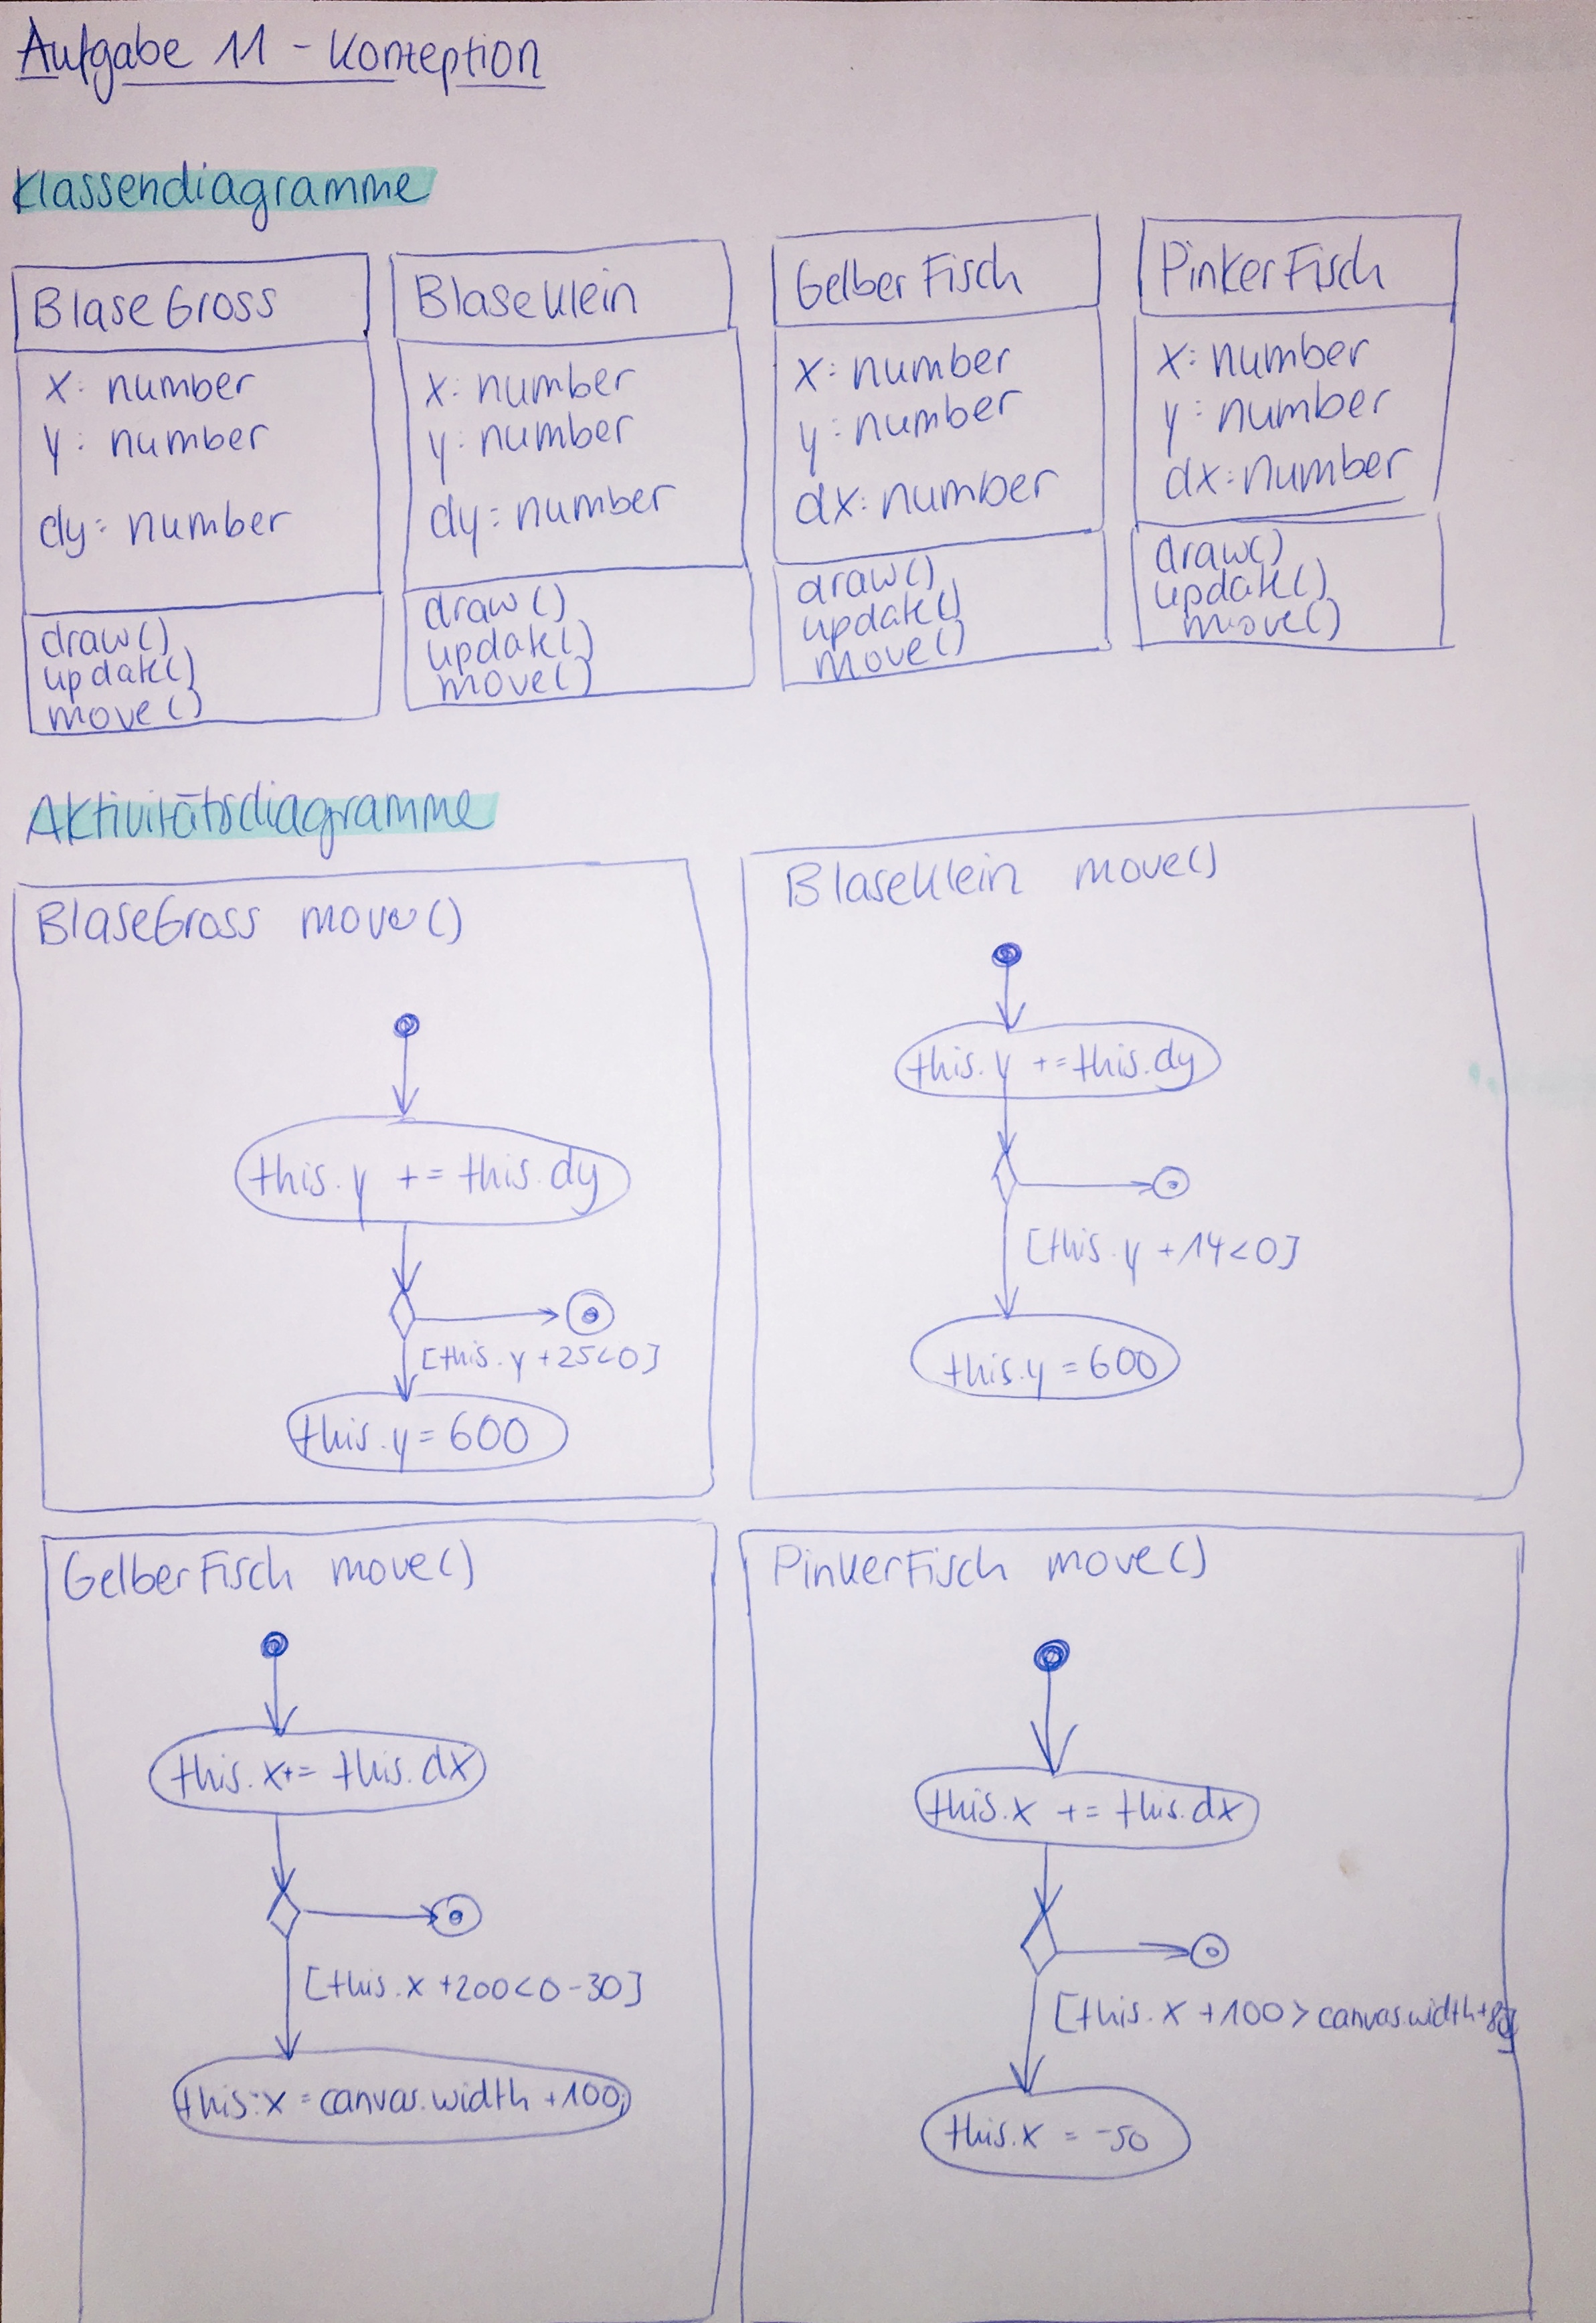 Aufgabe 11 - Konzeption
Klassendiagramme
BlaseGross
x: number
y: number
dy: number
draw()
update()
move()
BlaseKlein
x: number
y: number
dy: number
draw()
update()
move()
GelberFisch
x: number
y: number
dx: number
draw()
update()
move()
PinkerFisch
x: number
y: number
dx: number
draw()
update()
move()
Aktivitätsdiagramme
BlaseGross move()
this.y += this.dy
[this.y +25<0]
this.y = 600
BlaseKlein move()
this.y += this.dy
[this.y +14<0]
this.y = 600
GelberFisch move()
this.x += this.dx
[this.x +200<0-30]
this.x = canvas.width +100;
PinkerFisch move()
this.x += this.dx
[this.x +100 > canvas.width+80]
this.x = -50